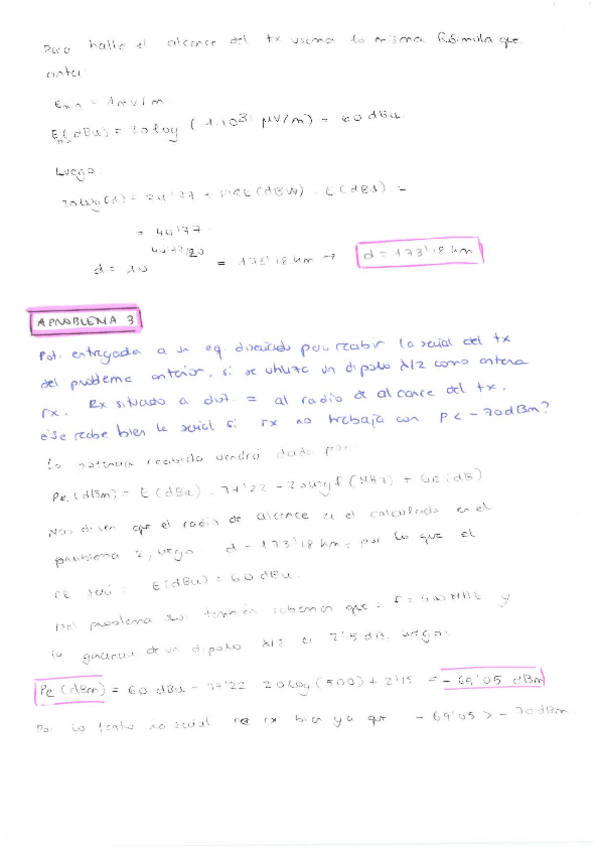 Para halla el alcance del tx usamos la misma fórmula que
antes:
Emin = 1mV/m
E(dBu) = 20log (1.10³ μV/m) = 60 dBu
min
Luego:
20log(d) = 24'77 + PIRE(dBW) - E(dBu) =
= 44'77
d = 10^44'77/20 = 173'18 km → d = 173'18 km
PROBLEMA 3
Pot. entregada a un eq. diseñado para recibir la señal del tx
del problema anterior, si se utiliza un dipolo λ/2 como antena
rx. Rx situado a dist. = al radio de alcance del tx.
¿Se recibe bien la señal si rx no trabaja con P < -70dBm?
La potencia recibida vendrá dada por:
Pe (dBm) = E(dBu) - 77'22 - 20log f (MHz) + GR (dB)
Nos dicen que el radio de alcance es el calculado en el
problema 2, luego: d = 173'18 km, por lo que el
será: E(dBu) = 60 dBu.
Del problema también sabemos que: f = 500 MHz y
la ganancia de un dipolo λ/2 es 2'15 dB, luego:
Pe (dBm) = 60 dBu - 77'22 - 20log(500) + 2'15 = -69'05 dBm
Por lo tanto señal rx bien ya que -69'05 > -70dBm